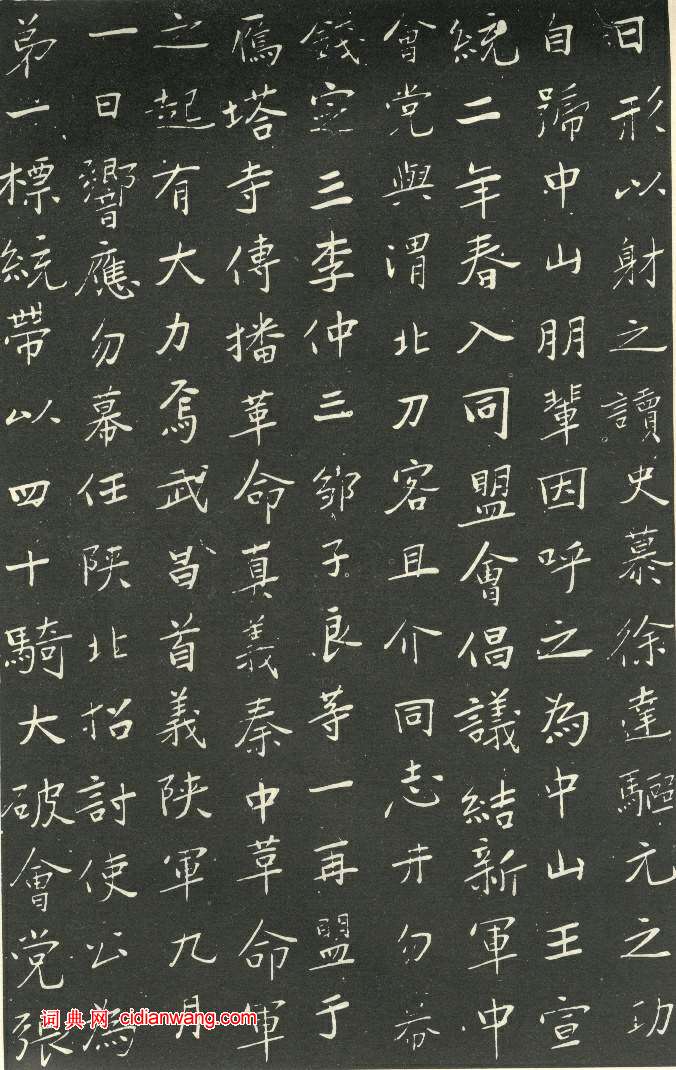 日形以射之讀史慕徐達驅元之功
自號中山朋輩因呼之為中山王宣
統二年春入同盟會倡議結新軍中
會党與渭北刀客且介同志井勿幕
錢定三李仲三鄒子良等一再盟于
雁塔寺傳播革命真義秦中革命軍
之起有大力焉武昌首義陝軍九月
一日響應勿幕任陝北招討使公為
弟一標統帶以四十騎大破會党張
词典网 cidianwang.com